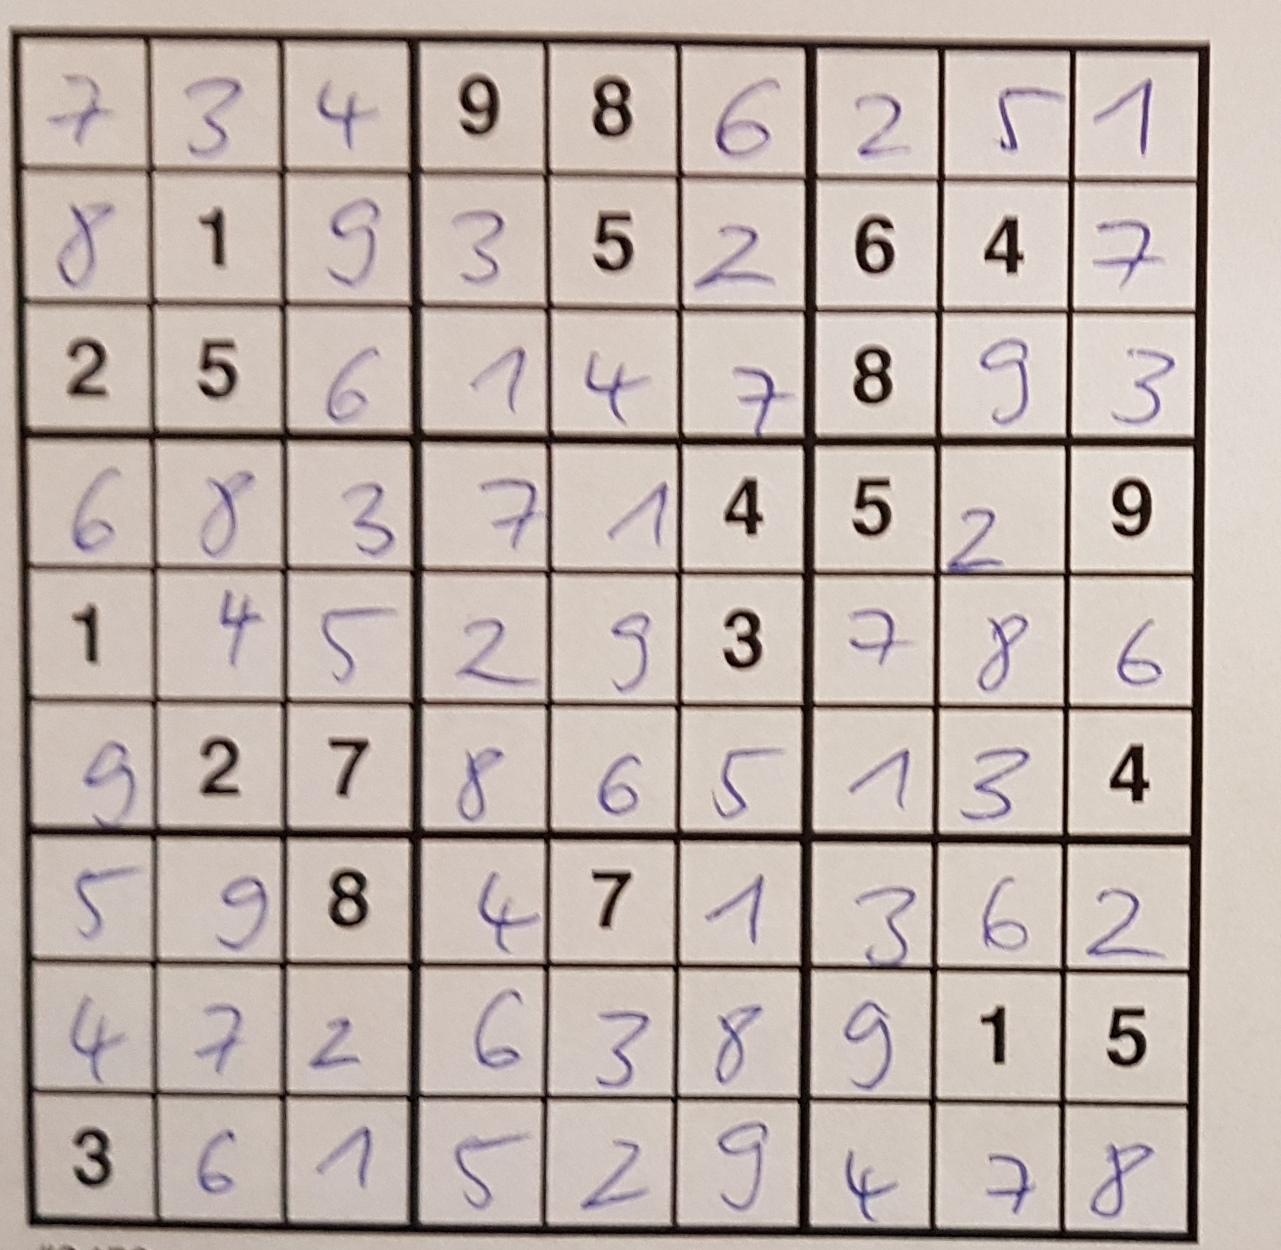 7 3 4 9 8 6 2 5 1
8 1 9 3 5 2 6 4 7
2 5 6 1 4 7 8 9 3
6 8 3 7 1 4 5 2 9
1 4 5 2 9 3 7 8 6
9 2 7 8 6 5 1 3 4
5 9 8 4 7 1 3 6 2
4 7 2 6 3 8 9 1 5
3 6 1 5 2 9 4 7 8